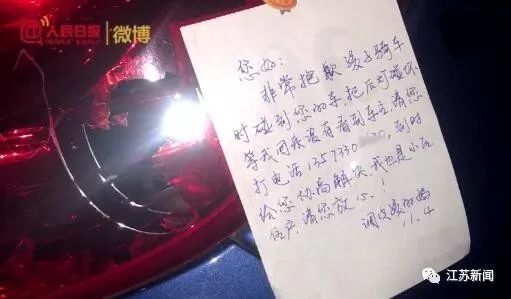 人民日报
PEOPLE'S DAILY
微博
您好：
非常抱歉孩子骑车
时碰到您的车,把后灯碰坏
等我回来没有看到车主请您
打电话1357330 20,到时
给您协商解决,我也是小区
住户,请您放心!
调皮孩的妈
1.4
江苏新闻